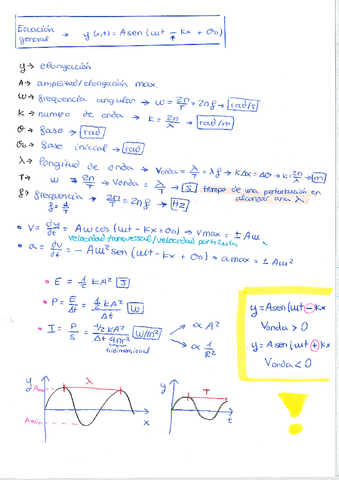 Ecuación general → y(x,t) = A sen (ωt ∓ kx + θ₀)
y → elongación
A → amplitud/elongación max.
ω → frequencia angular → ω = 2π/T = 2πf → rad/s
k → numero de onda → k = 2π/λ → rad/m
θ → fase → rad
θ₀ fase inicial → rad
λ → longitud de onda → Vonda = λ/T = λf → kΔx = Δθ → k = 2π/λ → m
T → ω = 2π/T → Vonda = λ/T → S tiempo de una perturbación en alcanzar una λ.
f → frequencia → 2π/T = 2πf → Hz
f = 1/T
• V = dy/dt = Aω cos (ωt - kx + θ₀) → Vmax = ± Aω
velocidad transversal/velocidad particula
• a = dv/dt = - Aω² sen (ωt - kx + θ₀) → amax = ± Aω²
• E = 1/2 kA² J
• P = E/Δt = 1/2 kA²/Δt W
• I = P/S = 1/2 kA²/Δt 4πr² W/m²
α A²
α 1/R²
tridimensional
y = A sen (ωt - kx
Vonda > 0
y = A sen (ωt + kx
Vonda < 0
!
y
Amax
λ
Amin
x
y
T
t